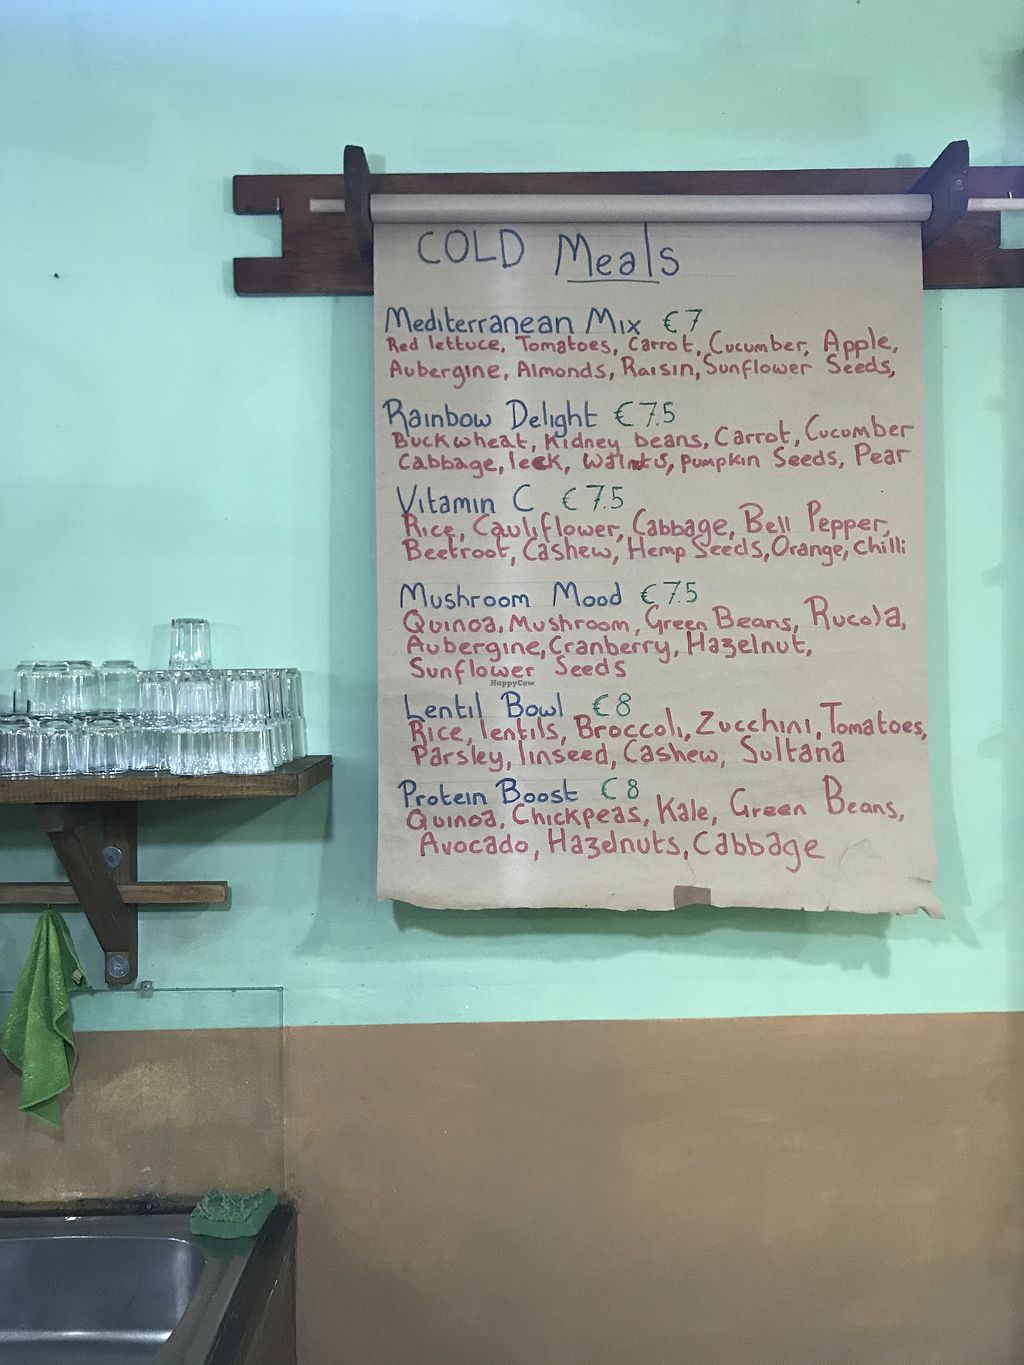 COLD Meals
Mediterranean Mix €7
Red lettuce, Tomatoes, Carrot, Cucumber, Apple,
Aubergine, Almonds, Raisin, Sunflower Seeds,
Rainbow Delight €7.5
Buckwheat, Kidney beans, Carrot, Cucumber
Cabbage, leek, Walnuts, pumpkin Seeds, Pear
Vitamin C €7.5
Rice, Cauliflower, Cabbage, Bell Pepper,
Beetroot, Cashew, Hemp Seeds, Orange, chilli
Mushroom Mood €7.5
Quinoa, Mushroom, Green Beans, Rucola,
Aubergine, Cranberry, Hazelnut,
Sunflower Seeds
HappyCow
Lentil Bowl €8
Rice, lentils, Broccoli, Zucchini, Tomatoes,
Parsley, linseed, Cashew, Sultana
Protein Boost €8
Quinoa, Chickpeas, Kale, Green Beans,
Avocado, Hazelnuts, Cabbage